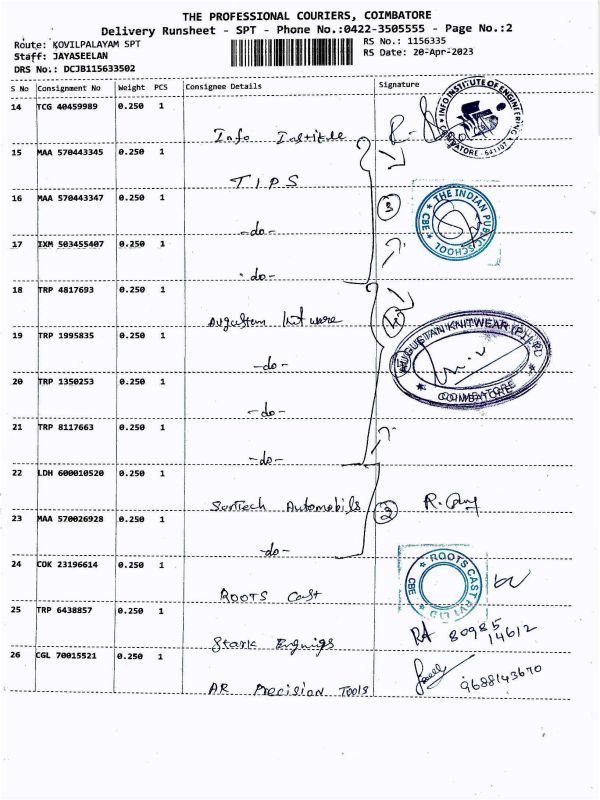 THE PROFESSIONAL COURIERS, COIMBATORE
Delivery Runsheet - SPT - Phone No.:0422-3505555 - Page No.:2
Route: KOVILPALAYAM SPT
RS No.: 1156335
Staff: JAYASEELAN
RS Date: 20-Apr-2023
DRS No.: DCJB115633502
S No Consignment No Weight PCS Consignee Details Signature
14 TCG 40459989 0.250 1
INFO INSTITUTE OF ENGINEERING
COIMBATORE - 641107
Info Institute
15 MAA 570443345 0.250 1
TIPS
16 MAA 570443347 0.250 1
3
THE INDIAN PUBLIC SCHOOL
CBE
-do-
17 IXM 503455407 0.250 1
-do-
18 TRP 4817693 0.250 1
Augustan Knitware
4
AUGUSTAN KNITWEAR (P) LTD
COIMBATORE
19 TRP 1995835 0.250 1
-do-
20 TRP 1350253 0.250 1
-do-
21 TRP 8117663 0.250 1
-do-
22 LDH 600010520 0.250 1
Automobils
2
23 MAA 570026928 0.250 1
-do-
24 COK 23196614 0.250 1
ROOTS CAST PVT LTD
CBE
ROOTS Cast
25 TRP 6438857 0.250 1
RA 80985
14612
Stark
26 CGL 70015521 0.250 1
9688143670
AR Precision Tools